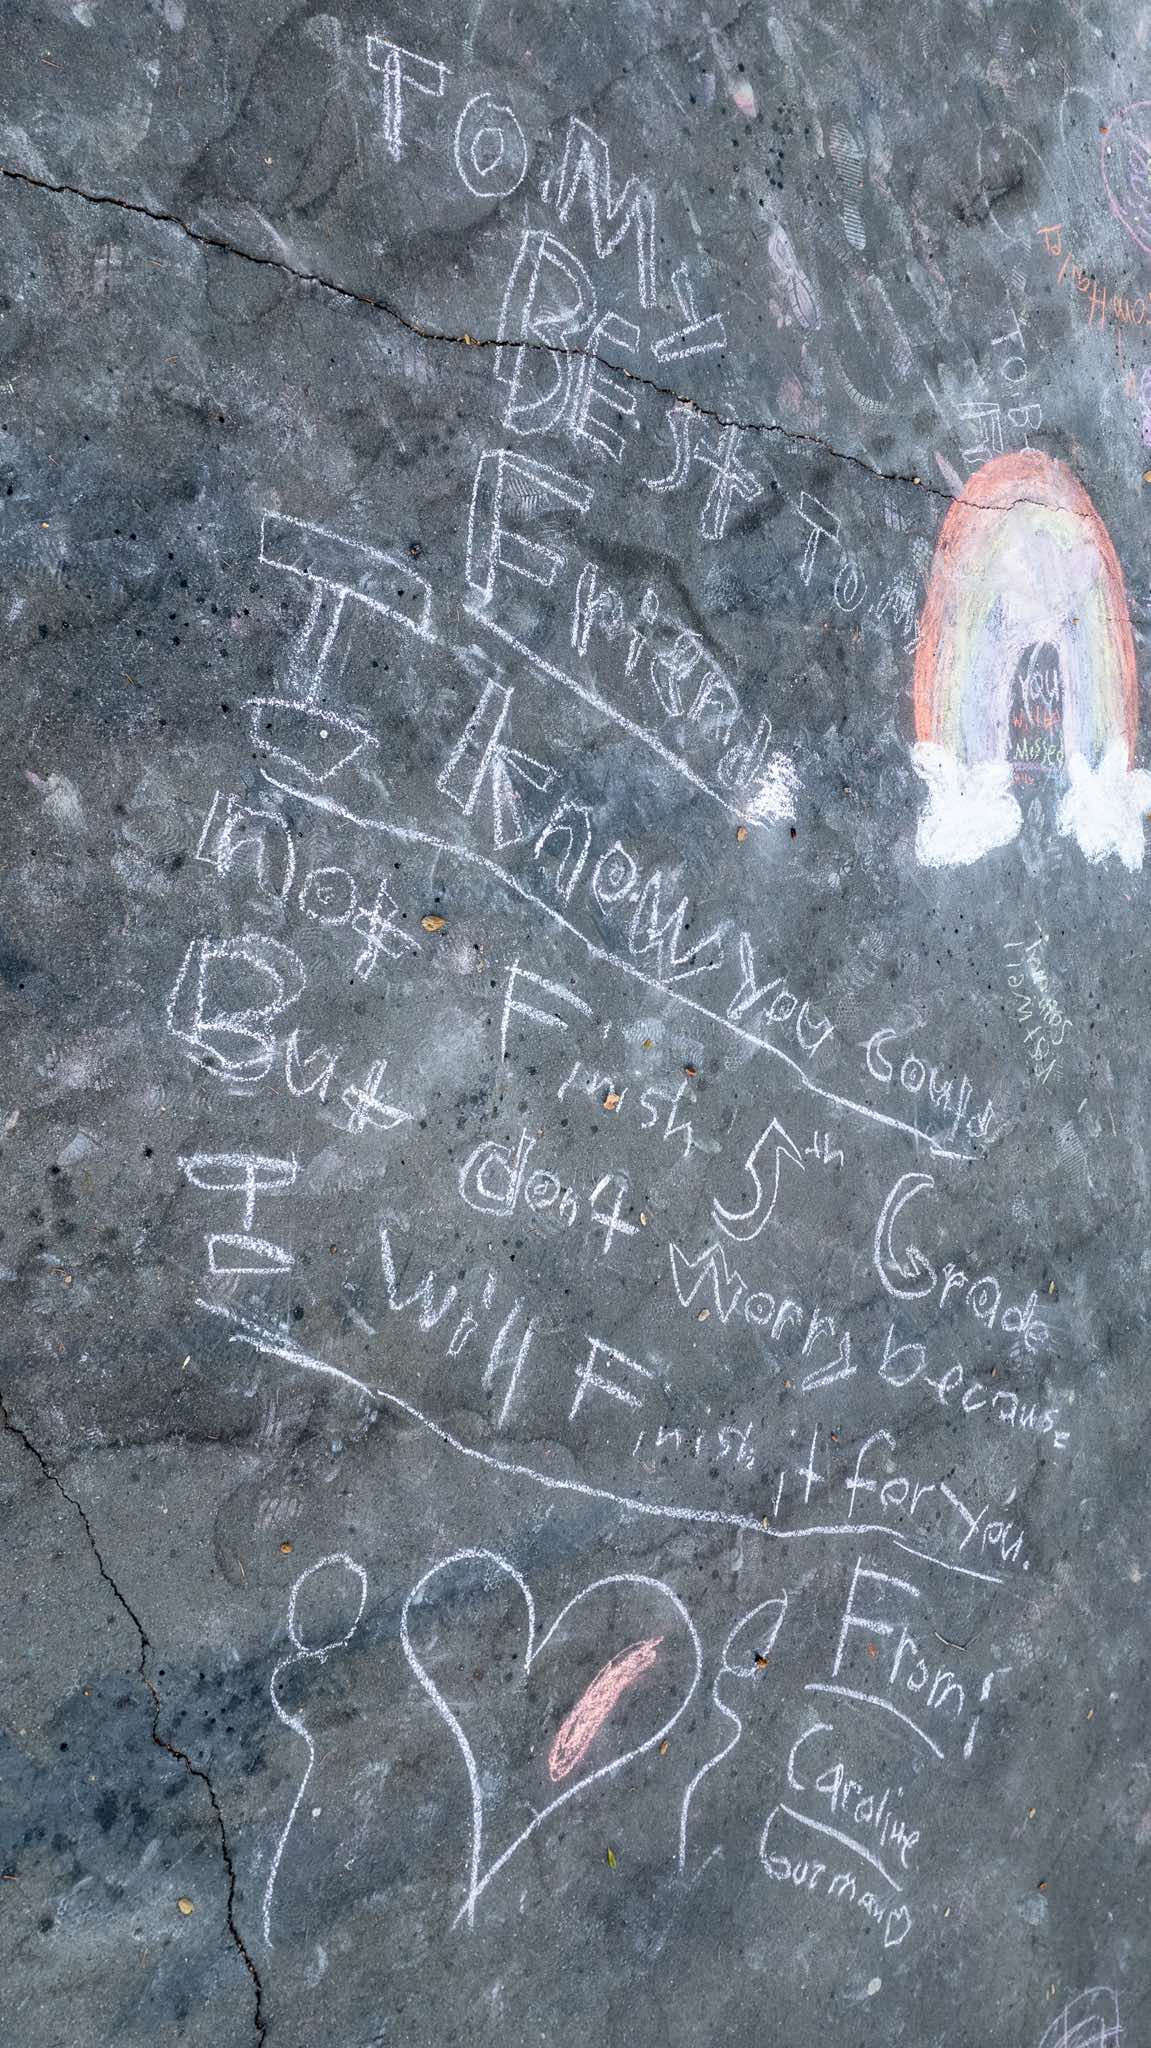 TO MY
BEST
Friend
I know you could
not Finish 5th Grade
But don't worry because
I will Finish it for you.
From:
Caroline
Gurman
You
will be
Missed